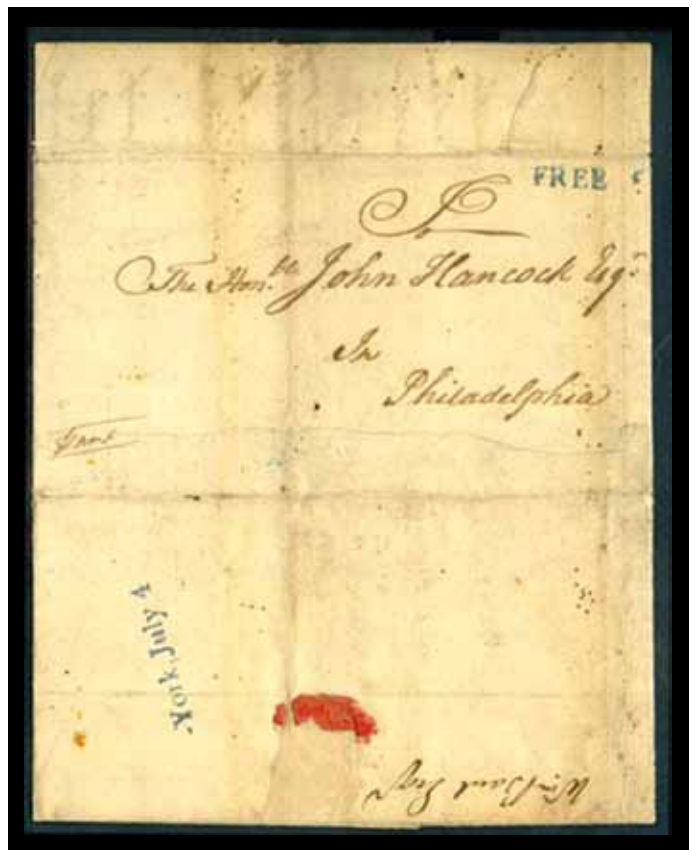 FREE
To
The Hon.ble John Hancock Esqr.
In
Philadelphia
York, July 4
Wm
Esqr